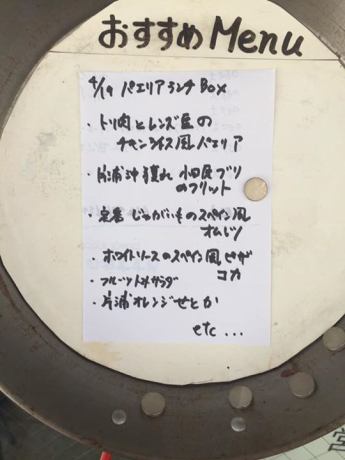 おすすめ Menu
4/19 パエリアランチBox
・トリ肉とレンズ豆の
チキンライス風パエリア
・片浦沖獲れ 小田原ブリ
のフリット
・定番 じゃがいものスペイン風
オムレツ
・ホワイトソースのスペイン風ピザ
コカ
・フルーツトマトサラダ
・片浦オレンジせとか
etc...